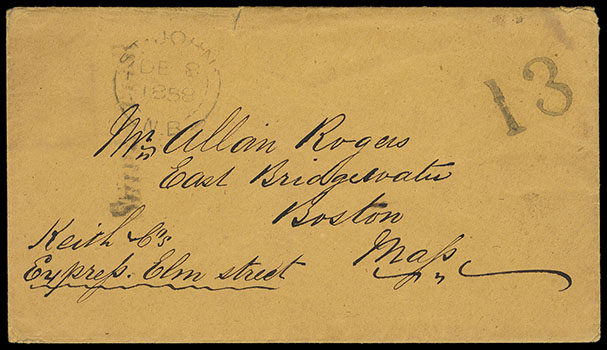 ST JOHN
DE 8
1858
N.B.
13
Mr Allan Rogers
East Bridgewater
Boston
Mass
Keith & Co's
Express. Elm street